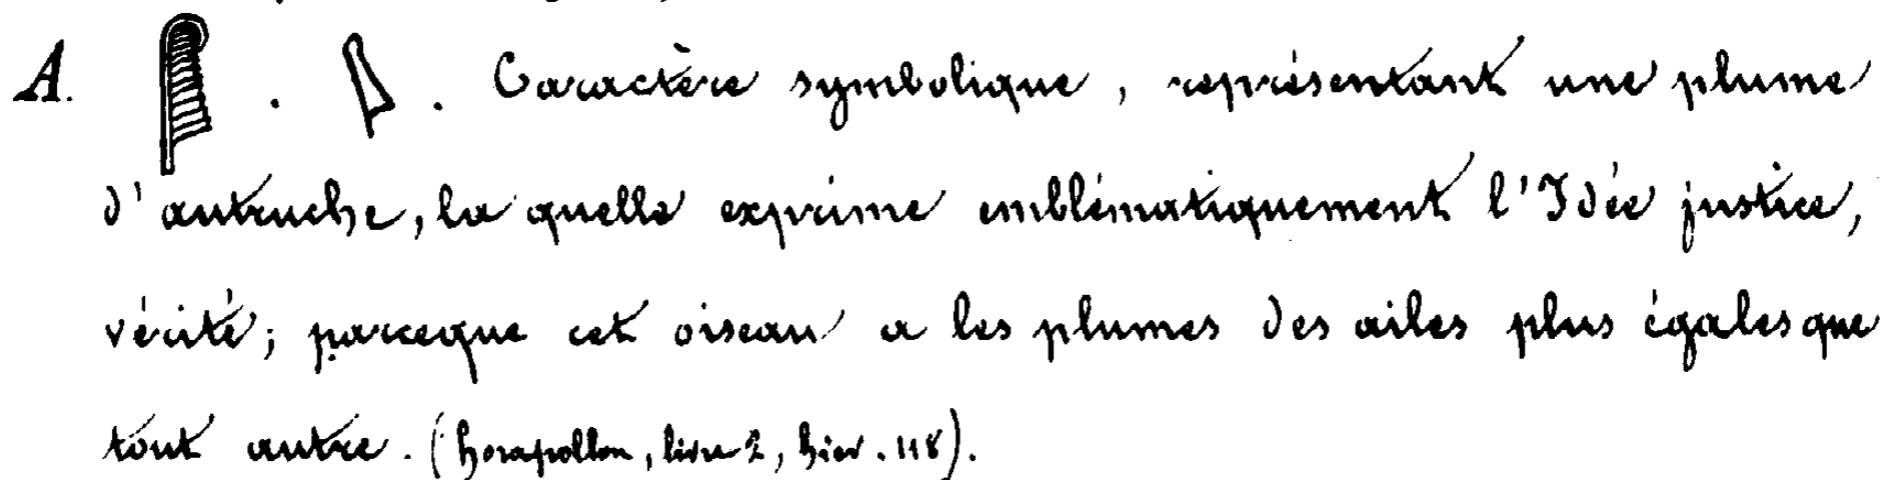 A. 𓆄 . . Caractère symbolique, représentant une plume
d'autruche, la quelle exprime emblématiquement l'Idée justice,
vérité; parceque cet oiseau a les plumes des ailes plus égales que
tout autre. (horapollon, livre 2, hier. 118).